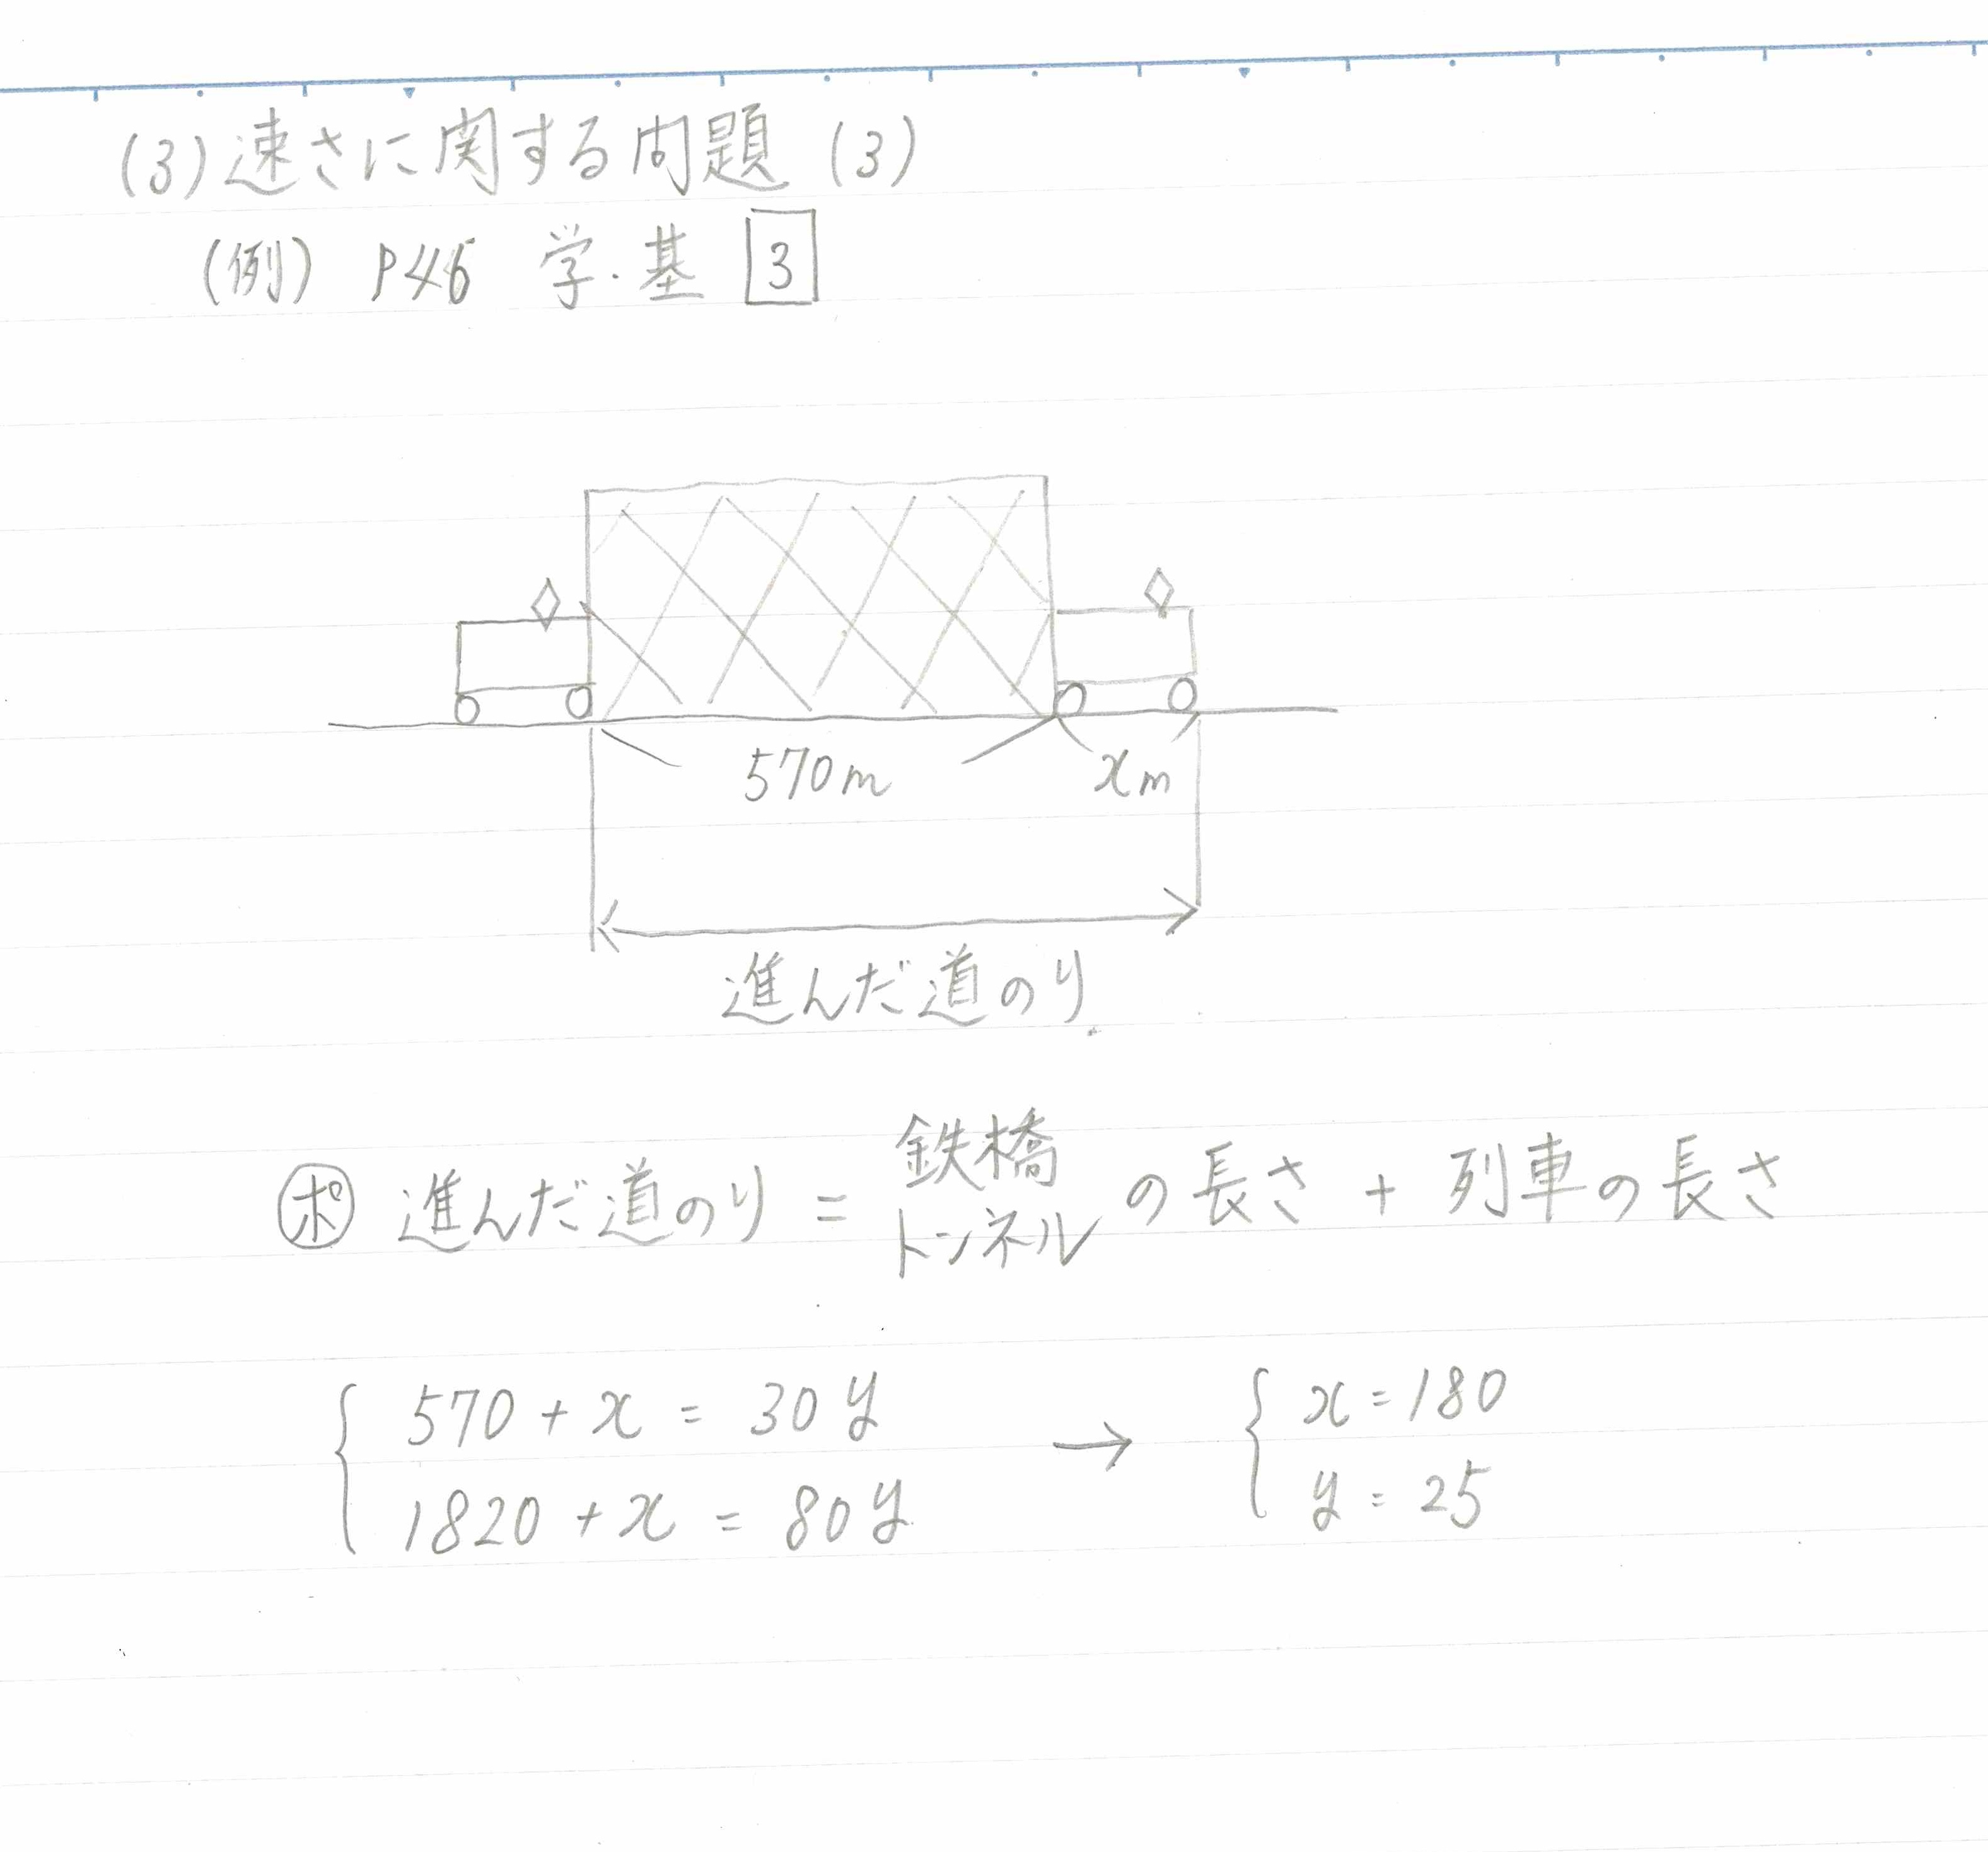 (3) 速さに関する問題 (3)
(例) P46 学・基 3
570m xm
進んだ道のり
ポ 進んだ道のり = 鉄橋 トンネル の長さ + 列車の長さ
570 + x = 30y → x = 180
1820 + x = 80y y = 25